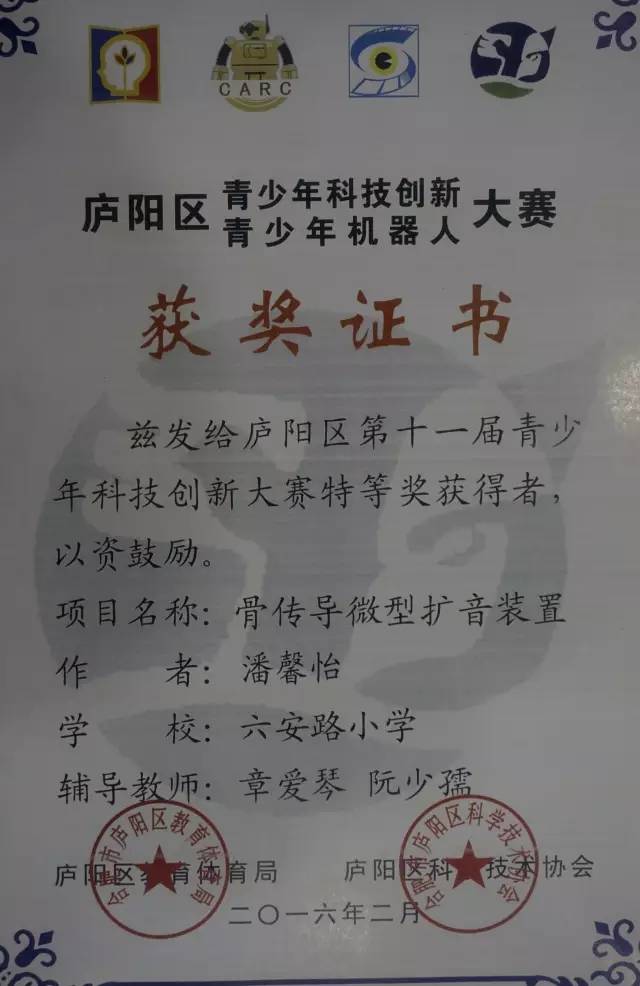 CARC
庐阳区 青少年科技创新 大赛
青少年机器人
获奖证书
兹发给庐阳区第十一届青少
年科技创新大赛特等奖获得者，
以资鼓励。
项目名称：骨传导微型扩音装置
作者：潘馨怡
学校：六安路小学
辅导教师：章爱琴 阮少孺
合肥市庐阳区教育体育局
合肥市庐阳区科学技术协会
庐阳区教育体育局 庐阳区科学技术协会
二〇一六年二月